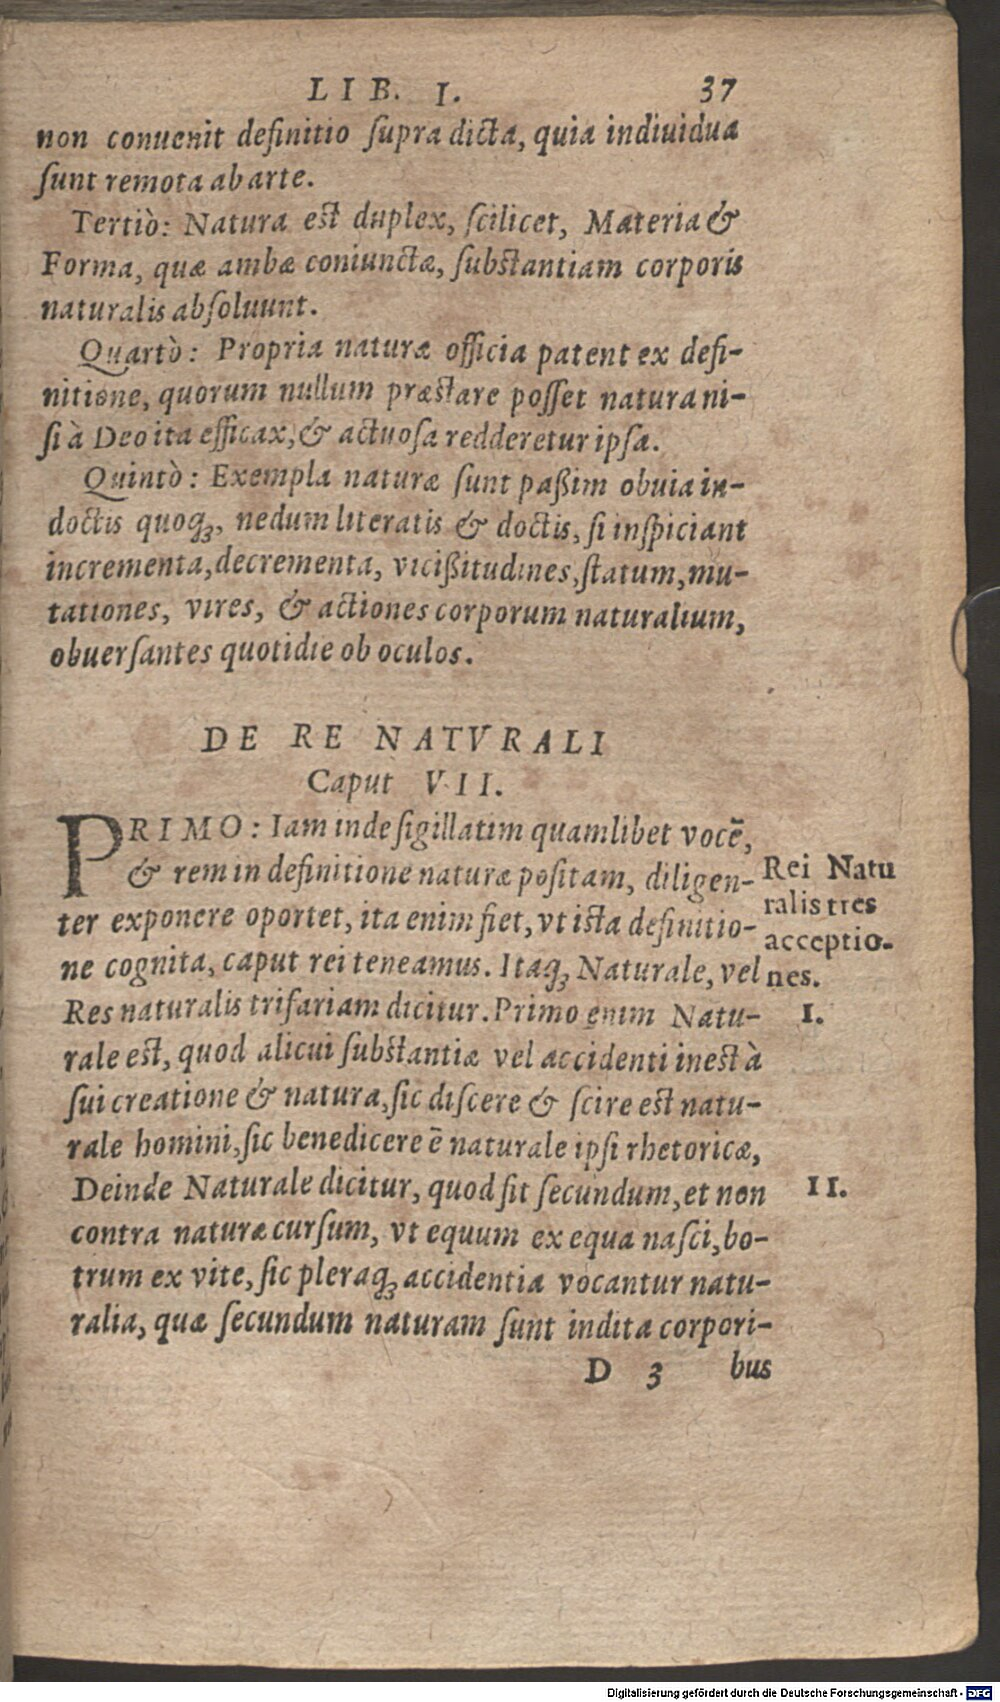 LIB. I. 37
non conuenit definitio ſupra dicta, quia indiuidua
ſunt remota ab arte.
Tertiò: Natura est duplex, ſcilicet, Materia &
Forma, quæ ambæ coniunctæ, ſubstantiam corporis
naturalis abſoluunt.
Quartò: Propria naturæ officia patent ex defi-
nitione, quorum nullum præstare poſſet natura ni-
ſi à Deo ita efficax, & actuoſa redderetur ipſa.
Quintò: Exempla naturæ ſunt paßim obuia in-
doctis quoq₃, nedum literatis & doctis, ſi inſpiciant
incrementa, decrementa, vicißitudines, ſtatum, mu-
tationes, vires, & actiones corporum naturalium,
obuerſantes quotidie ob oculos.
DE RE NATVRALI
Caput VII.
PRIMO: Iam inde ſigillatim quamlibet vocē,
& rem in definitione naturæ poſitam, diligen-
ter exponere oportet, ita enim fiet, vt iſta definitio-
ne cognita, caput rei teneamus. Itaq₃ Naturale, vel
Res naturalis trifariam dicitur. Primo enim Natu-
rale est, quod alicui ſubstantiæ vel accidenti inest à
ſui creatione & natura, ſic diſcere & ſcire est natu-
rale homini, ſic benedicere ē naturale ipſi rhetoricæ,
Deinde Naturale dicitur, quod ſit ſecundum, et non
contra naturæ curſum, vt equum ex equa naſci, bo-
trum ex vite, ſic pleraq₃ accidentia vocantur natu-
ralia, quæ ſecundum naturam ſunt indita corpori-
D 3 bus
Rei Natu
ralis tres
acceptio-
nes.
I.
II.
Digitalisierung gefördert durch die Deutsche Forschungsgemeinschaft - DFG